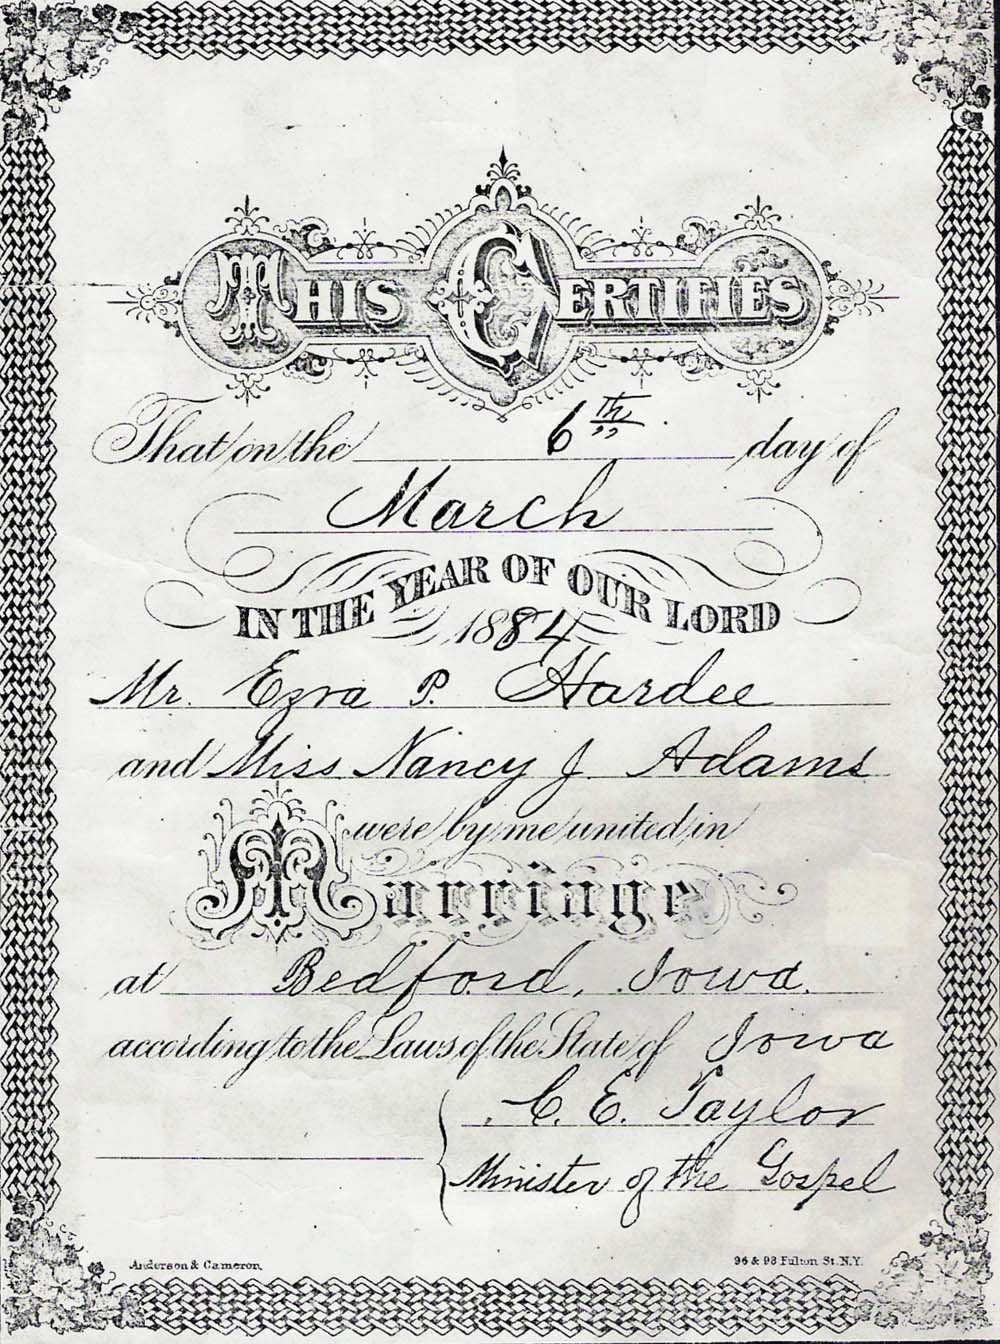 THIS CERTIFIES
That on the 6th day of
March
IN THE YEAR OF OUR LORD
1884
Mr. Ezra P. Hardee
and Miss Nancy J. Adams
were by me united in
Marriage
at Bedford, Iowa.
according to the Laws of the State of Iowa
C. E. Taylor
Minister of the Gospel
Anderson & Cameron, 96 & 98 Fulton St. N.Y.